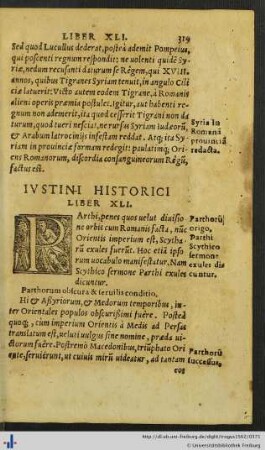 LIBER XLI. 319
Sed quod Lucullus dederat, postrà ademit Pompeius,
qui poscenti regnum respondit: ne uolenti quidẽ Sy
riæ, nedum recusanti daturum se Regem, qui XVIII.
annos, quibus Tigranes Syriam tenuit, in angulo Cili
ciæ latuerit: Victo autem eodem Tigrane, à Romanis
alieni operis præmia postulet. igitur, aut habenti re
gnum non ademerit, ita quod cesserit Tigrani non da
turum, quod tueri nesciat, ne rursus Syriam iudæorũ,
et Arabum latrocinijs infestam reddat. Atq; ita Sy
riam in prouinciæ formam redegit: paulatimq; Ori
ens Romanorum, discordia consanguineorum Regũ,
factus est.
Syria in
Romani
prouinciã
redacta.
IVSTINI HISTORICI
LIBER XLI.
PArthi, penes quos uelut diuisio
ne orbis cum Romanis facta, nũc
Orientis imperium est, Scytha-
rũ exules fuere. Hoc etiã ipso
rum uocabulo manifestatur. Nam
Scythico sermone Parthi exules
dicuntur.
Parthorũ
origo.
Parthi
Scythico
sermone
exules di
cuntur.
Parthorum obscura & seruilis conditio.
Hi et Assyriorum, et Medorum temporibus, in-
ter Orientales populos obscurissimi fuêre. Posteà
quoq;, cùm imperium Orientis à Medis ad Persas
translatum est, ueluti uulgus sine nomine, præda ui-
ctorum fuêre. Postremò Macedonibus, triũphato Ori
ente, seruierunt, ut cuiuis mirũ uideatur, ad tantam
Parthorũ
successus.
eos
http://dl.ub.uni-freiburg.de/diglit/trogus1562/0375
© Universitätsbibliothek Freiburg